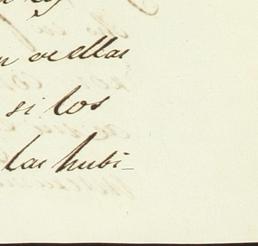 n aellas
si los
las hubi-